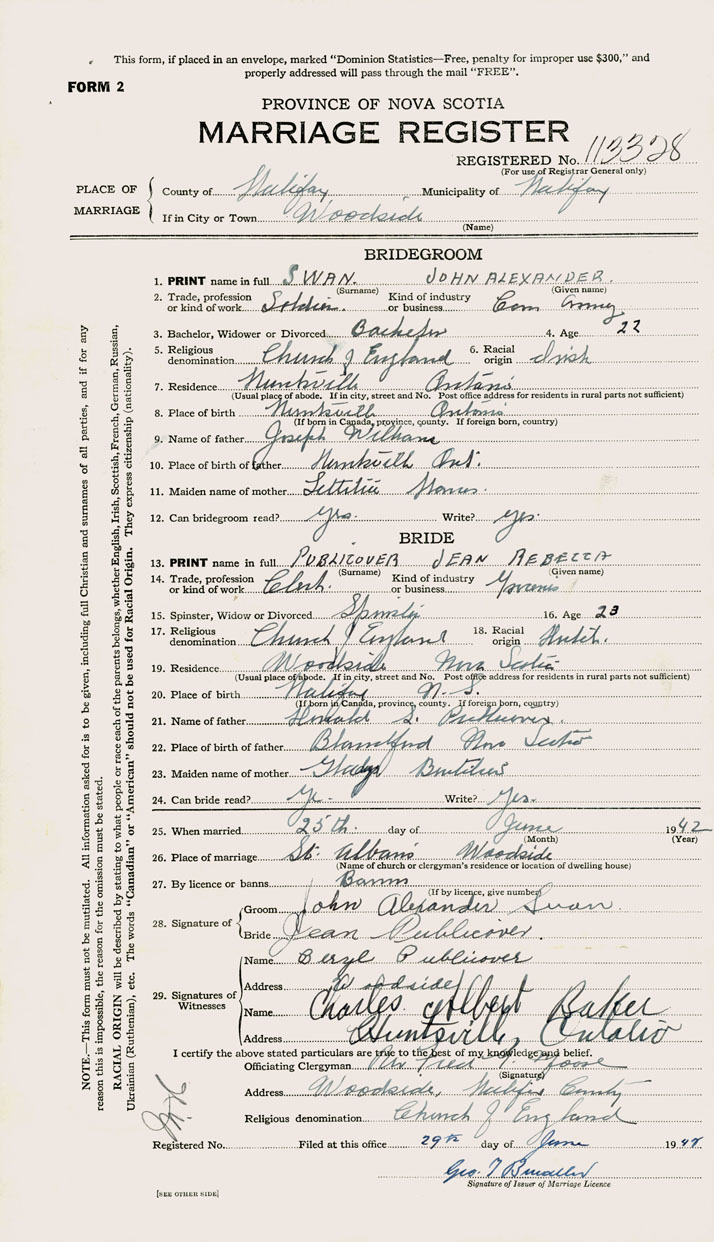 This form, if placed in an envelope, marked "Dominion Statistics—Free, penalty for improper use $300," and
properly addressed will pass through the mail "FREE".
FORM 2
PROVINCE OF NOVA SCOTIA
MARRIAGE REGISTER
REGISTERED No. 113328
(For use of Registrar General only)
PLACE OF MARRIAGE
County of Halifax Municipality of Halifax
If in City or Town Woodside
(Name)
BRIDEGROOM
1. PRINT name in full SWAN. JOHN ALEXANDER.
(Surname) (Given name)
2. Trade, profession or kind of work Soldier. Kind of industry or business Can Army
3. Bachelor, Widower or Divorced Bachelor 4. Age 22
5. Religious denomination Church of England 6. Racial origin Irish
7. Residence Huntsville Ontario
(Usual place of abode. If in city, street and No. Post office address for residents in rural parts not sufficient)
8. Place of birth Huntsville Ontario
(If born in Canada, province, county. If foreign born, country)
9. Name of father Joseph William
10. Place of birth of father Huntsville Ont.
11. Maiden name of mother Lettitia
12. Can bridegroom read? Yes. Write? Yes.
BRIDE
13. PRINT name in full PUBLICOVER JEAN REBECCA
(Surname) (Given name)
14. Trade, profession or kind of work Clerk. Kind of industry or business
15. Spinster, Widow or Divorced Spinster 16. Age 23
17. Religious denomination Church of England 18. Racial origin
19. Residence Woodside Nova Scotia
(Usual place of abode. If in city, street and No. Post office address for residents in rural parts not sufficient)
20. Place of birth Halifax N. S.
(If born in Canada, province, county. If foreign born, country)
21. Name of father S. Publicover.
22. Place of birth of father Blandford Nova Scotia
23. Maiden name of mother Gladys Boutilier
24. Can bride read? Ye- Write? Yes.
25. When married 25th. day of June 1942
(Month) (Year)
26. Place of marriage St. Albans Woodside
(Name of church or clergyman's residence or location of dwelling house)
27. By licence or banns Banns
(If by licence, give number)
28. Signature of
Groom John Alexander Swan.
Bride Jean Publicover.
29. Signatures of Witnesses
Name Beryl Publicover
Address Woodside
Name Charles Albert Baker
Address Huntsville, Ontario
I certify the above stated particulars are true to the best of my knowledge and belief.
Officiating Clergyman Fred
(Signature)
Address Woodside, Halifax County
Religious denomination Church of England
Registered No. Filed at this office 29th day of June 1942
Geo. T
Signature of Issuer of Marriage Licence
[SEE OTHER SIDE]
NOTE.—This form must not be mutilated. All information asked for is to be given, including full Christian and surnames of all parties, and if for any
reason this is impossible, the reason for the omission must be stated.
RACIAL ORIGIN will be described by stating to what people or race each of the parents belongs, whether English, Irish, Scottish, French, German, Russian,
Ukrainian (Ruthenian), etc. The words "Canadian" or "American" should not be used for Racial Origin. They express citizenship (nationality).